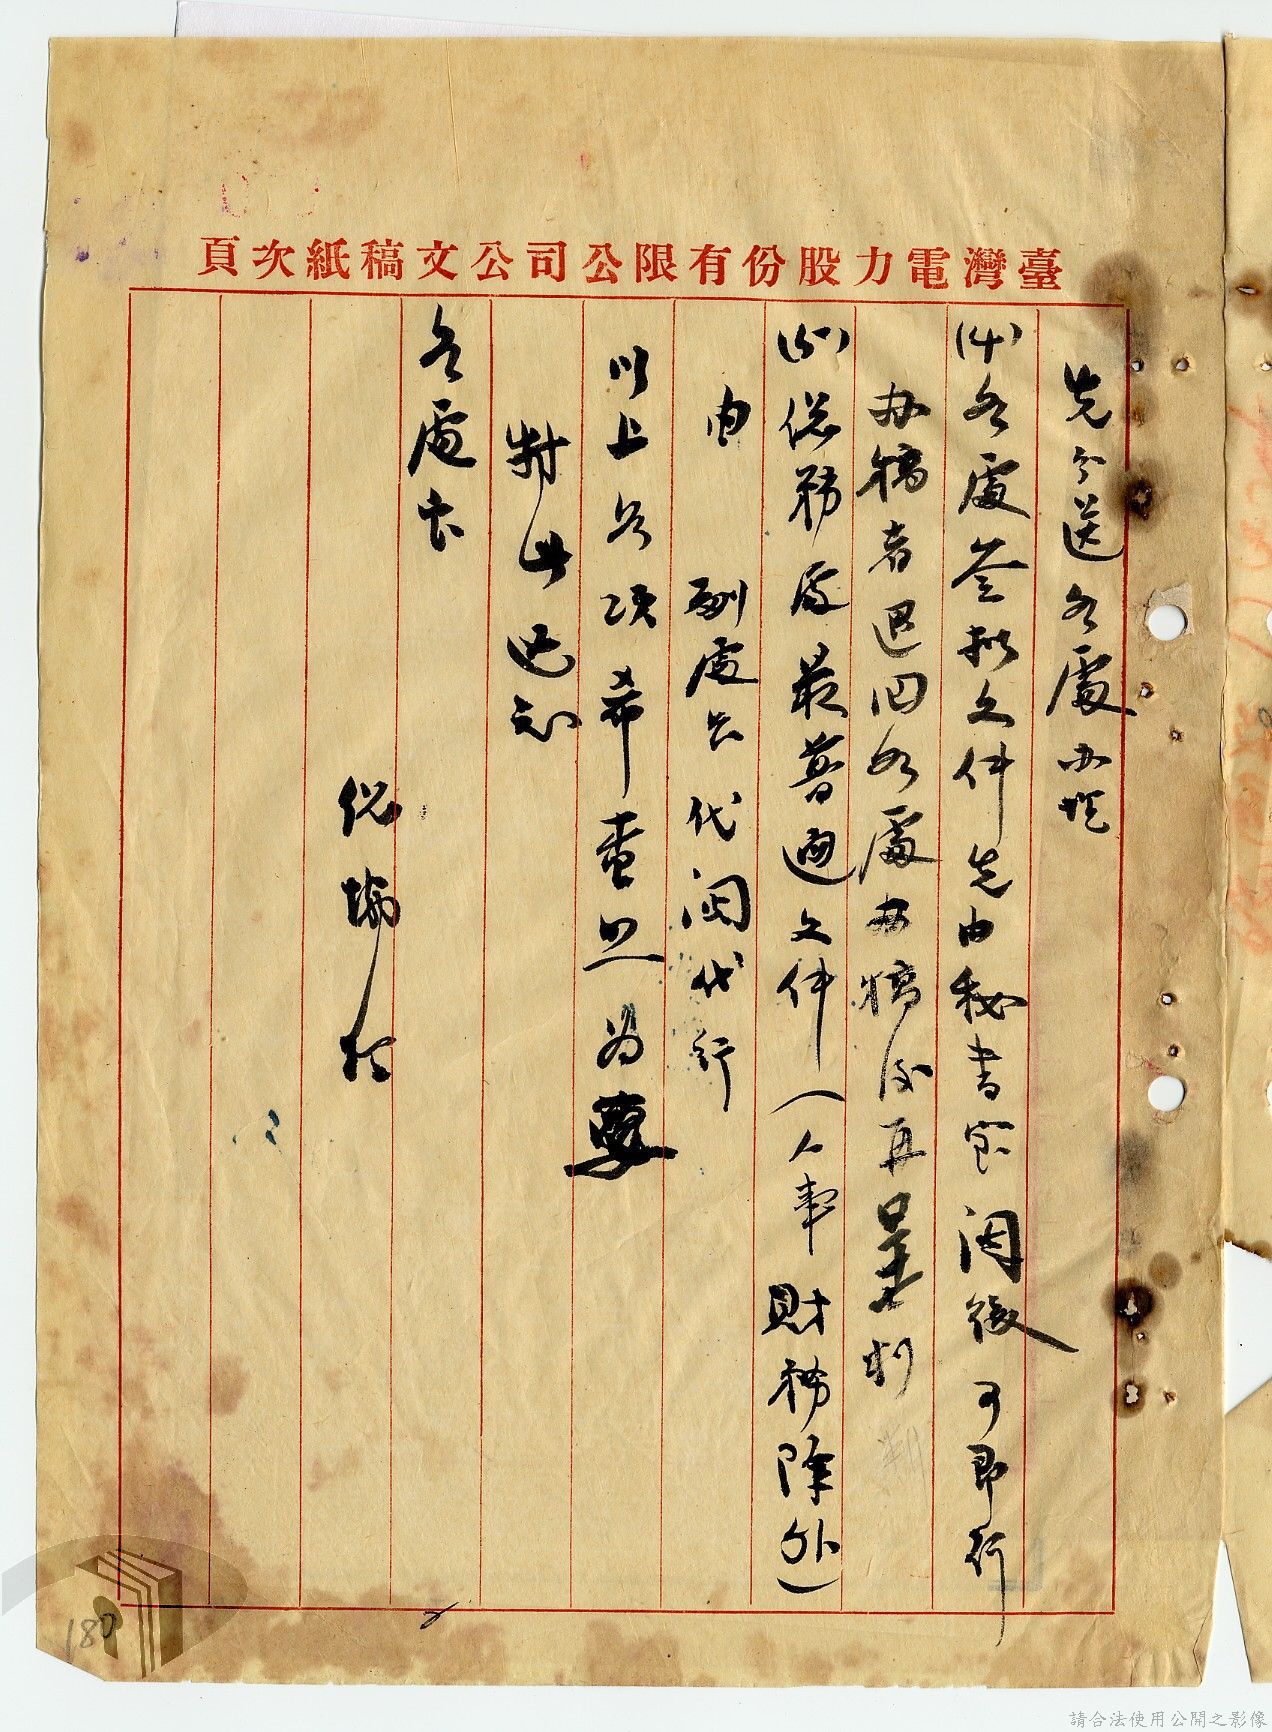 臺灣電力股份有限公司公文稿紙次頁
先分送各處办理
(4)各處簽拟文件先由秘書室閱後可即行
办稿者退回各處办稿後再呈判
判
(5)總務處最普通文件(人事 財務除外)
由 副處長代閱代行
以上各項希查照為要
特此通知
各處長
180
請合法使用公開之影像